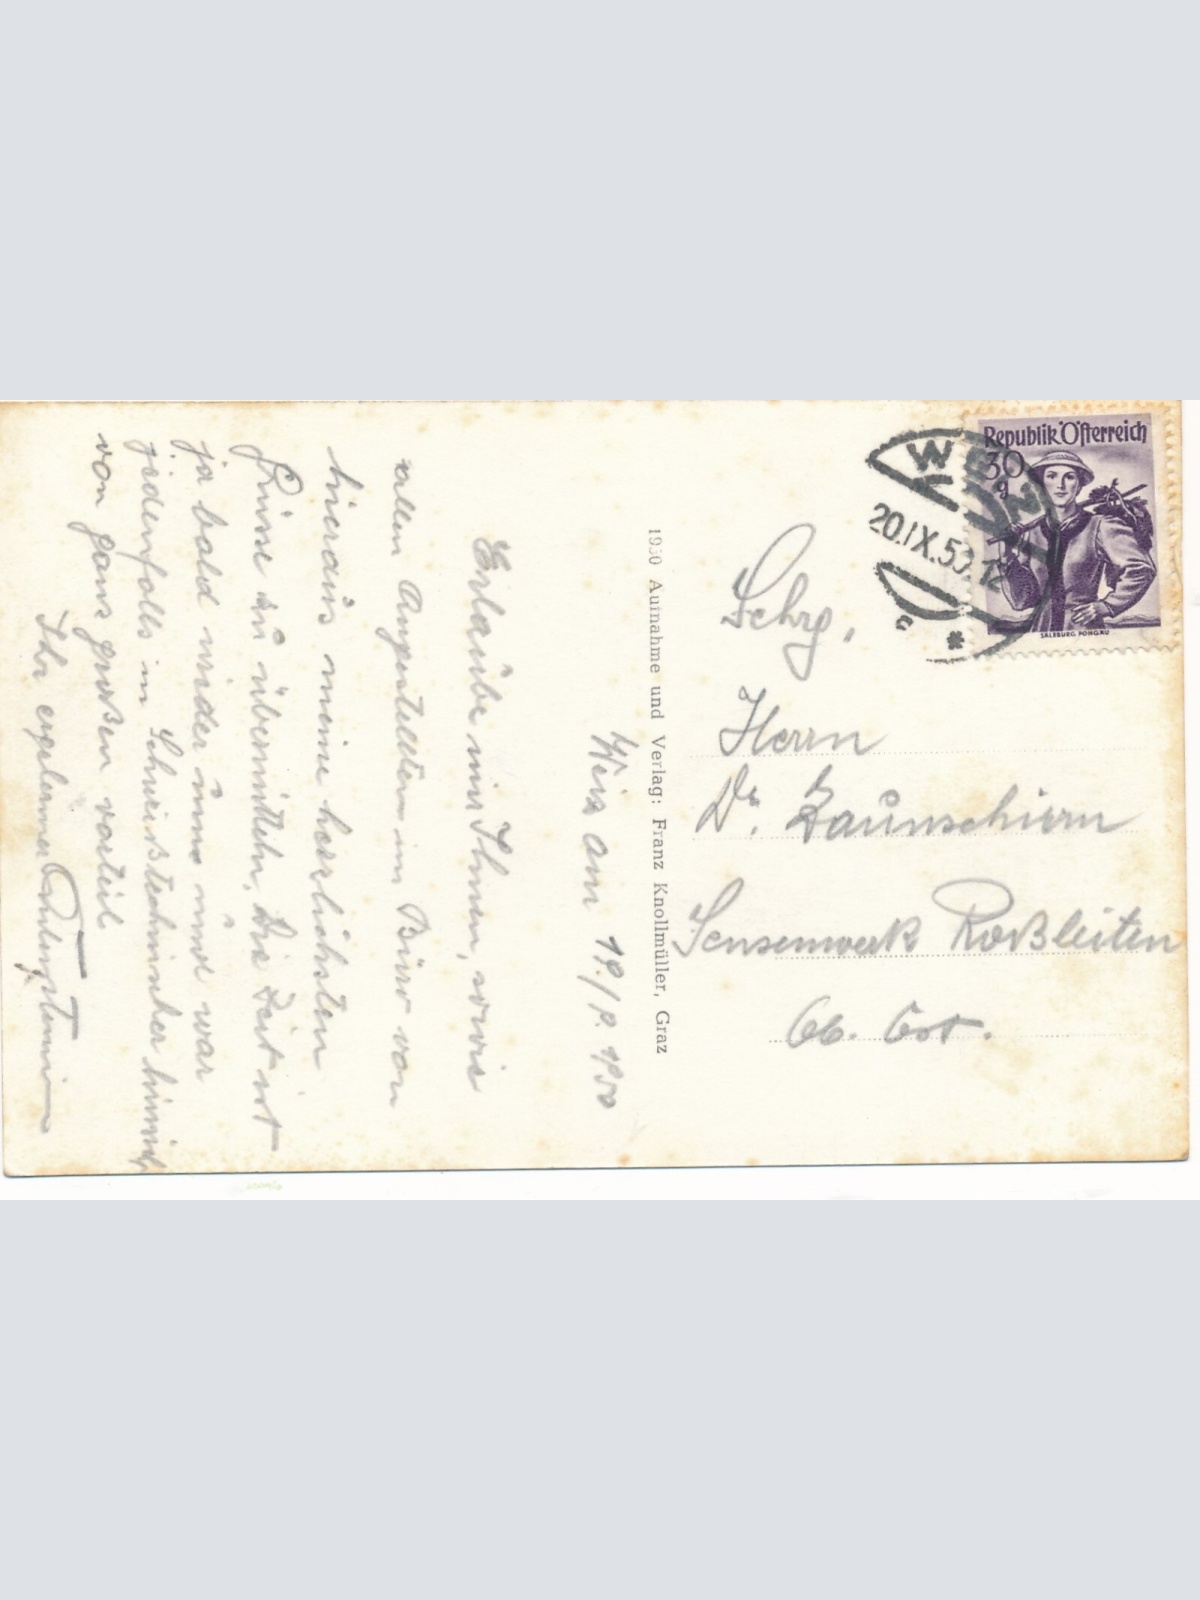 Weiz am 19./9. 1950
Erlaube mir Ihnen, sowie
allen Angestellten im Büro von
hieraus meine herzlichsten
Grüsse zu übermitteln, die Zeit ist
ja bald wieder umm und war
jedenfalls in Schweisstechnischer hinsicht
von ganz großen vorteil
Ihr ergebener
1950 Aufnahme und Verlag: Franz Knollmüller, Graz
Republik Österreich
30
g
SALZBURG PONGAU
WEIZ
20.IX.50.12
c
*
Sehrg,
Herrn
Dr. Zaunschirm
Sensenwerk Roßleiten
Ob. Öst.